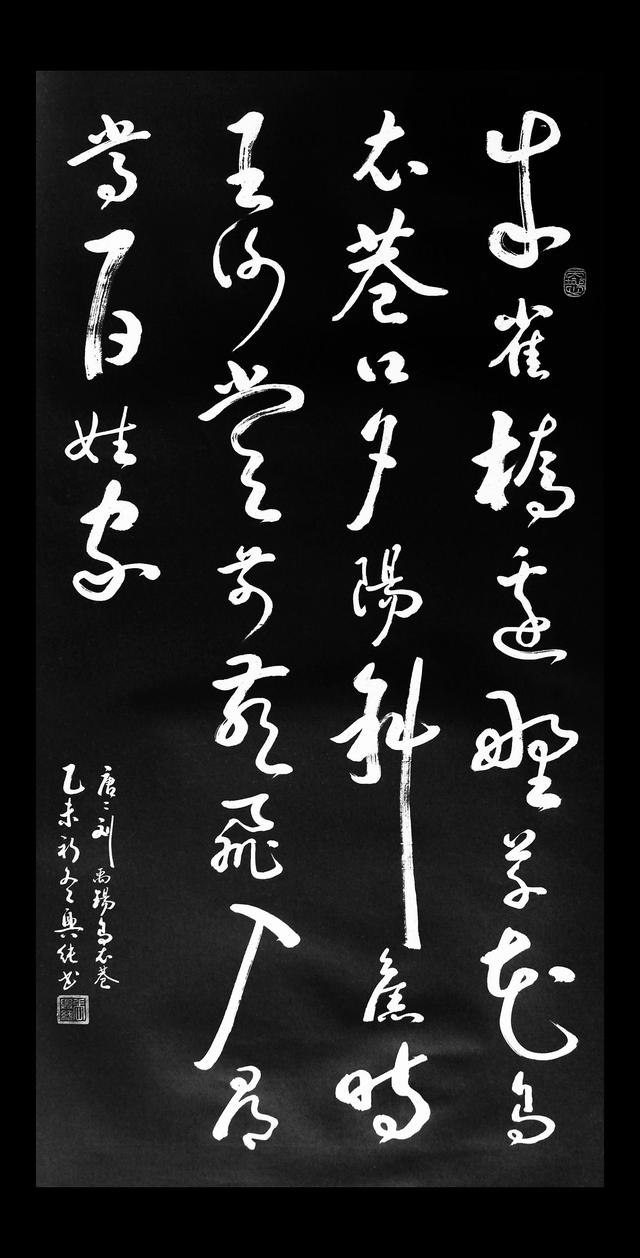 朱雀橋邊野草花烏
衣巷口夕陽斜舊時
王謝堂前燕飛入尋
常百姓家
唐：刘禹錫烏衣巷
乙未初冬興純书